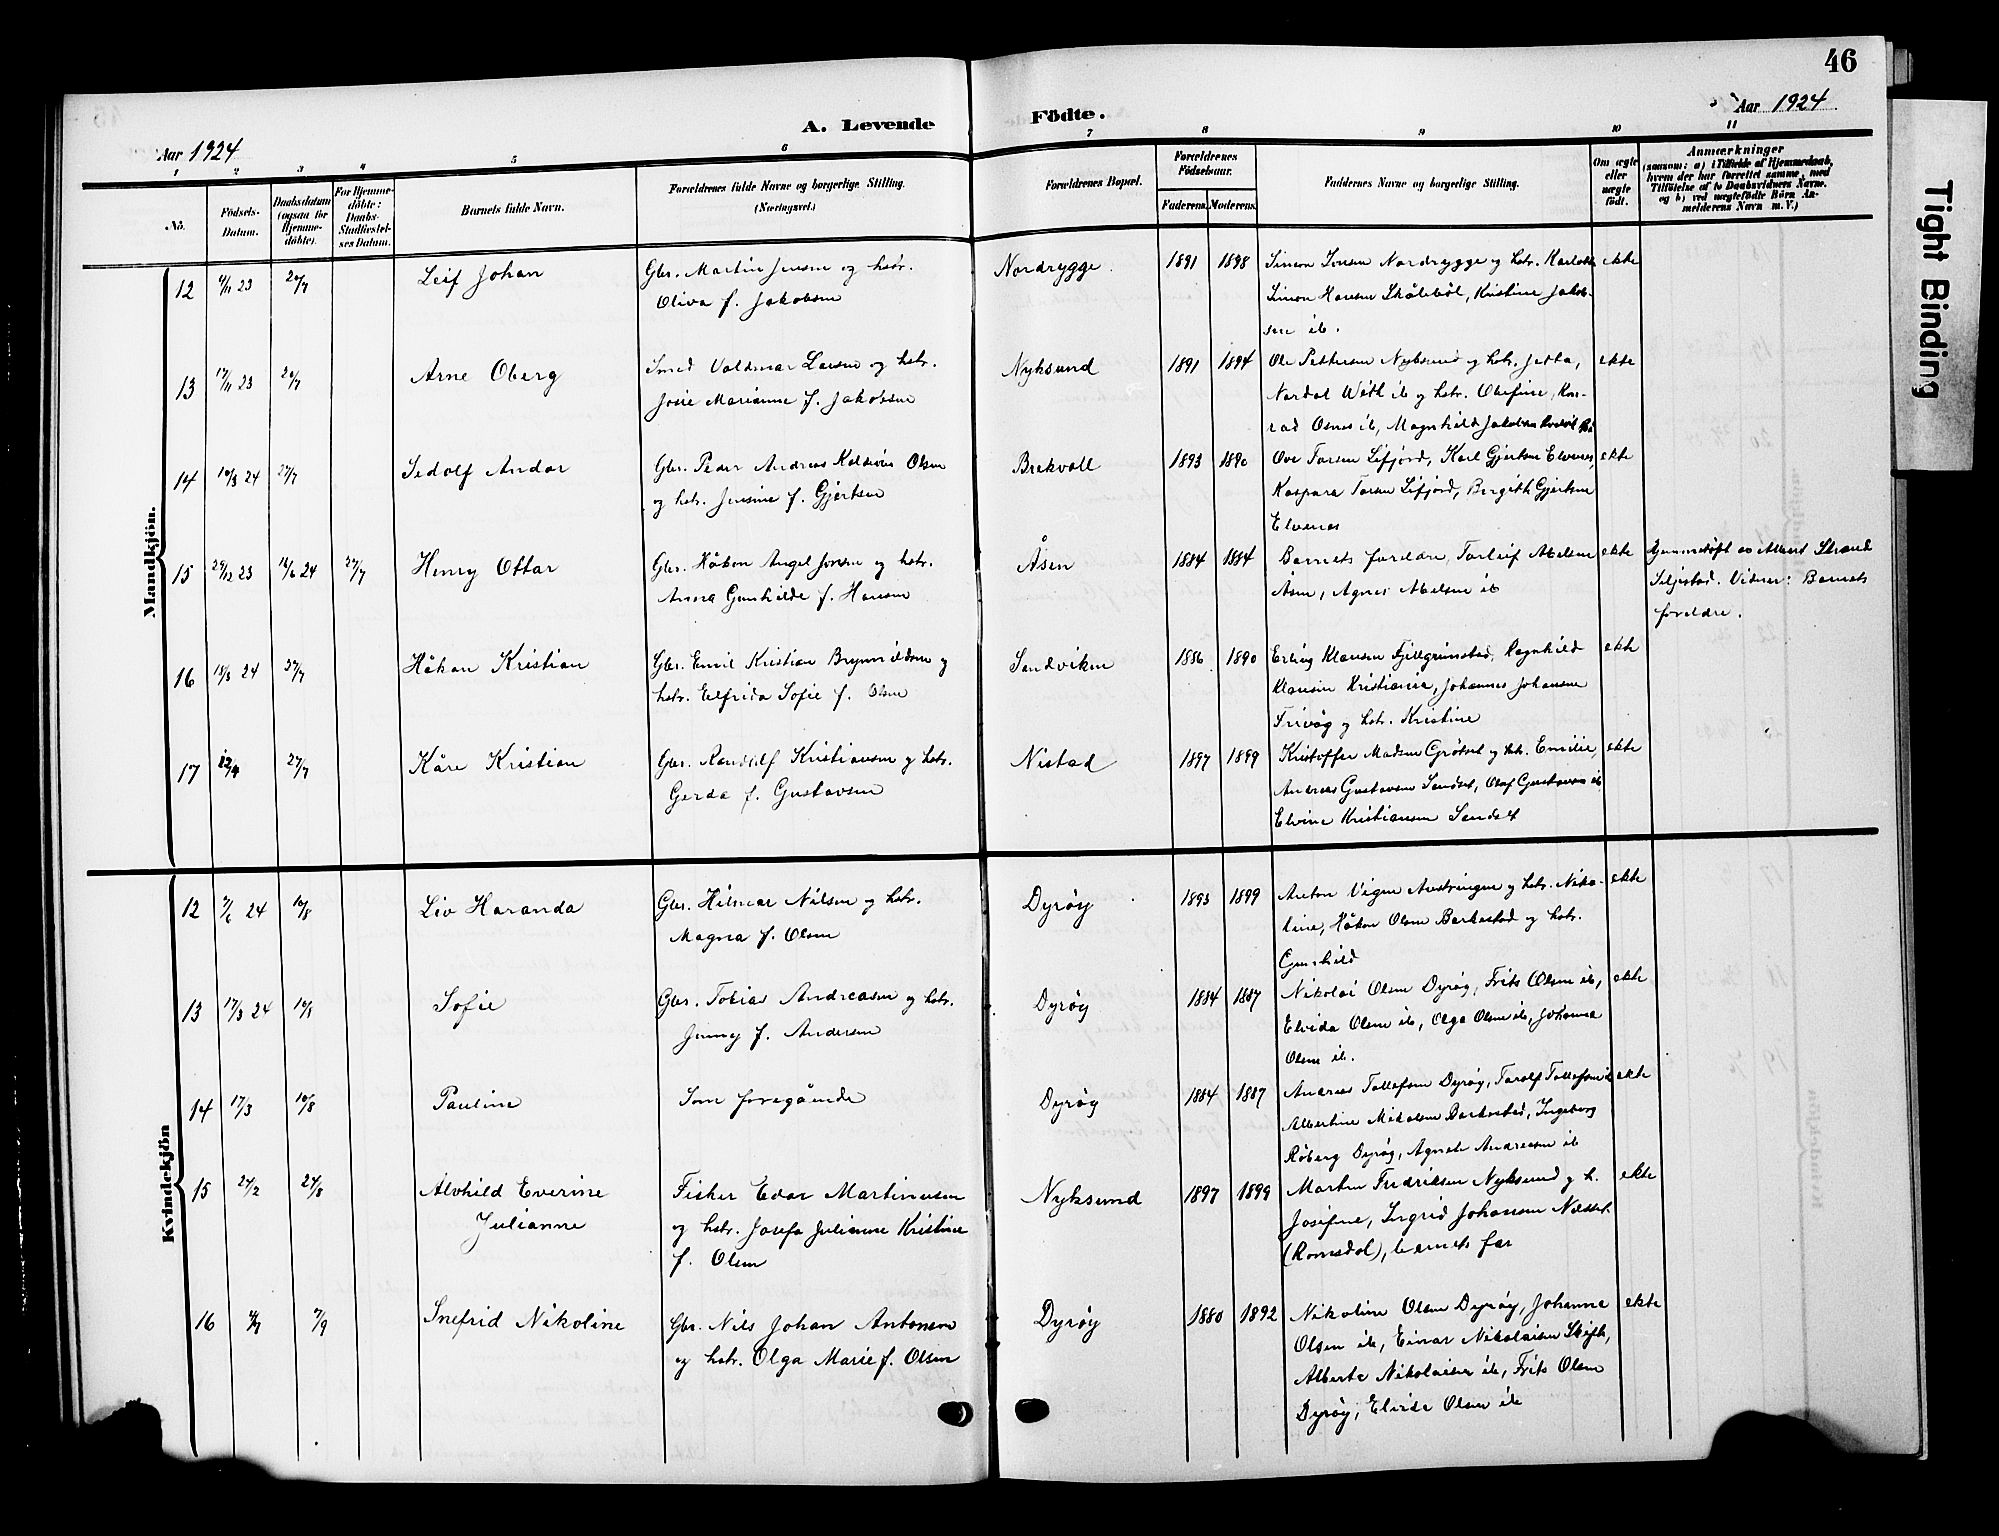 46
Tight Binding
A. Levende Födte.
Aar 1924
Aar 1924
1 2 3 4 5 6 7 8 9 10 11
No.
Födsels-Datum.
Daabsdatum (ogsaa for Hjemme-döbte).
For Hjemme-döbte: Daabs-Stadfæstel-ses Datum.
Barnets fulde Navn.
Forældrenes fulde Navne og borgerlige Stilling. (Næringsvei.)
Forældrenes Bopæl.
Forældrenes Födselsaar.
Faderens. Moderens.
Faddernes Navne og borgerlige Stilling.
Om ægte eller uægte født.
Anmærkninger
(saasom: a) i Tilfælde af Hjemmedaab,
hvem der har forrettet samme, med
Tilföielse af to Daabsvidners Navne.
og b) ved uægtefödte Börn An-
melderens Navn m. V.)
Mandkjön.
12 4/11 23 20/7 Leif Johan Gbr. Martin Jensen og hstr. Nordrygge. 1891 1898 Simon Jensen Nordrygge og hstr. Karlotte ekte
Oliva f. Jakobsen Simon Hansen Skålebøl, Kristine Jakob-
sen ib.
13 17/11 23 20/7 Arne Oberg Smed Valdmar Larsen og hstr. Nyksund 1891 1894 Ole Pettersen Nyksund og hstr. Jetta, ekte
Josie Marianne f. Jakobsen Nordal Weth ib og hstr. Olufine, Kon-
rad Osnes ib, Magnhild Jakobsen
14 10/3 24 27/7 Sedolf Andor Gbr. Peder Andreas Olsen Brekvoll 1893 1890 Ove Torsen Lifjord, Karl Gjertsen Elvenes, ekte
og hstr. Jensine f. Gjertsen Kaspara Torsen Lifjord, Bergith Gjertsen
Elvenes
15 29/12 23 16/6 24 27/7 Henry Ottar Gbr. Håkon Angel Jensen og hstr. Åsen 1884 1884 Barnets foreldre, Torleif Abelsen ekte Hjemmedøpt av Albert Strand
Anna Gunhilde f. Hansen Åsen, Agnes Abelsen ib Seljestad. Vidner: Barnets
foreldre.
16 18/3 24 27/7 Håkon Kristian Gbr. Emil Kristian Brynnildsen og Sandviken 1886 1890 Erling Klausen Fjellgrimstad, Ragnhild ekte
hstr. Elfrida Sofie f. Olsen Klausen Kristiania, Johannes Johansen
Trivåg og hstr. Kristine
17 27/7 Kåre Kristian Gbr. Randulf Kristiansen og hstr. Nistad 1897 1899 Kristoffer Madsen Grøtset og hstr. Emilie, ekte
Gerda f. Gustavsen Andreas Gustavsen Sandset, Olaf Gustavsen ib
Elvine Kristiansen Sandset
Kvindekjön
12 7/6 24 10/8 Liv Haranda Gbr. Hilmar Nilsen og hstr. Dyrøy 1893 1899 Anton Vigen Austringen og hstr. Niko- ekte
Magna f. Olsen line, Håkon Olsen Barkestad og hstr.
Gunhild
13 17/3 24 10/8 Sofie Gbr. Tobias Andreasen og hstr. Dyrøy 1884 1887 Nikolai Olsen Dyrøy, Frits Olsen ib, ekte
Jenny f. Andersen Elvida Olsen ib, Olga Olsen ib, Johanna
Olsen ib.
14 17/3 10/8 Pauline Som foregående Dyrøy 1884 1887 Andreas Tollefsen Dyrøy, Torolf Tollefsen ib ekte
Albertine Mikalsen Barkestad, Ingeborg
Røberg Dyrøy, Agnete Andreasen ib
15 24/2 24/8 Alvhild Everine Fisker Edor Martinusen Nyksund 1897 1899 Martin Fredriksen Nyksund og h. ekte
Julianne og hstr. Josefa Julianne Kristine Josefine, Ingrid Johansen Næsset
f. Olsen (Romsdal), barnets far
16 7/9 Snefrid Nikoline Gbr. Nils Johan Antonsen Dyrøy 1880 1892 Nikoline Olsen Dyrøy, Johanne ekte
og hstr. Olga Marie f. Olsen Olsen ib, Einar Nikolaisen Skift,
Alberte Nikolaisen ib, Frits Olsen
Dyrøy, Elvide Olsen ib